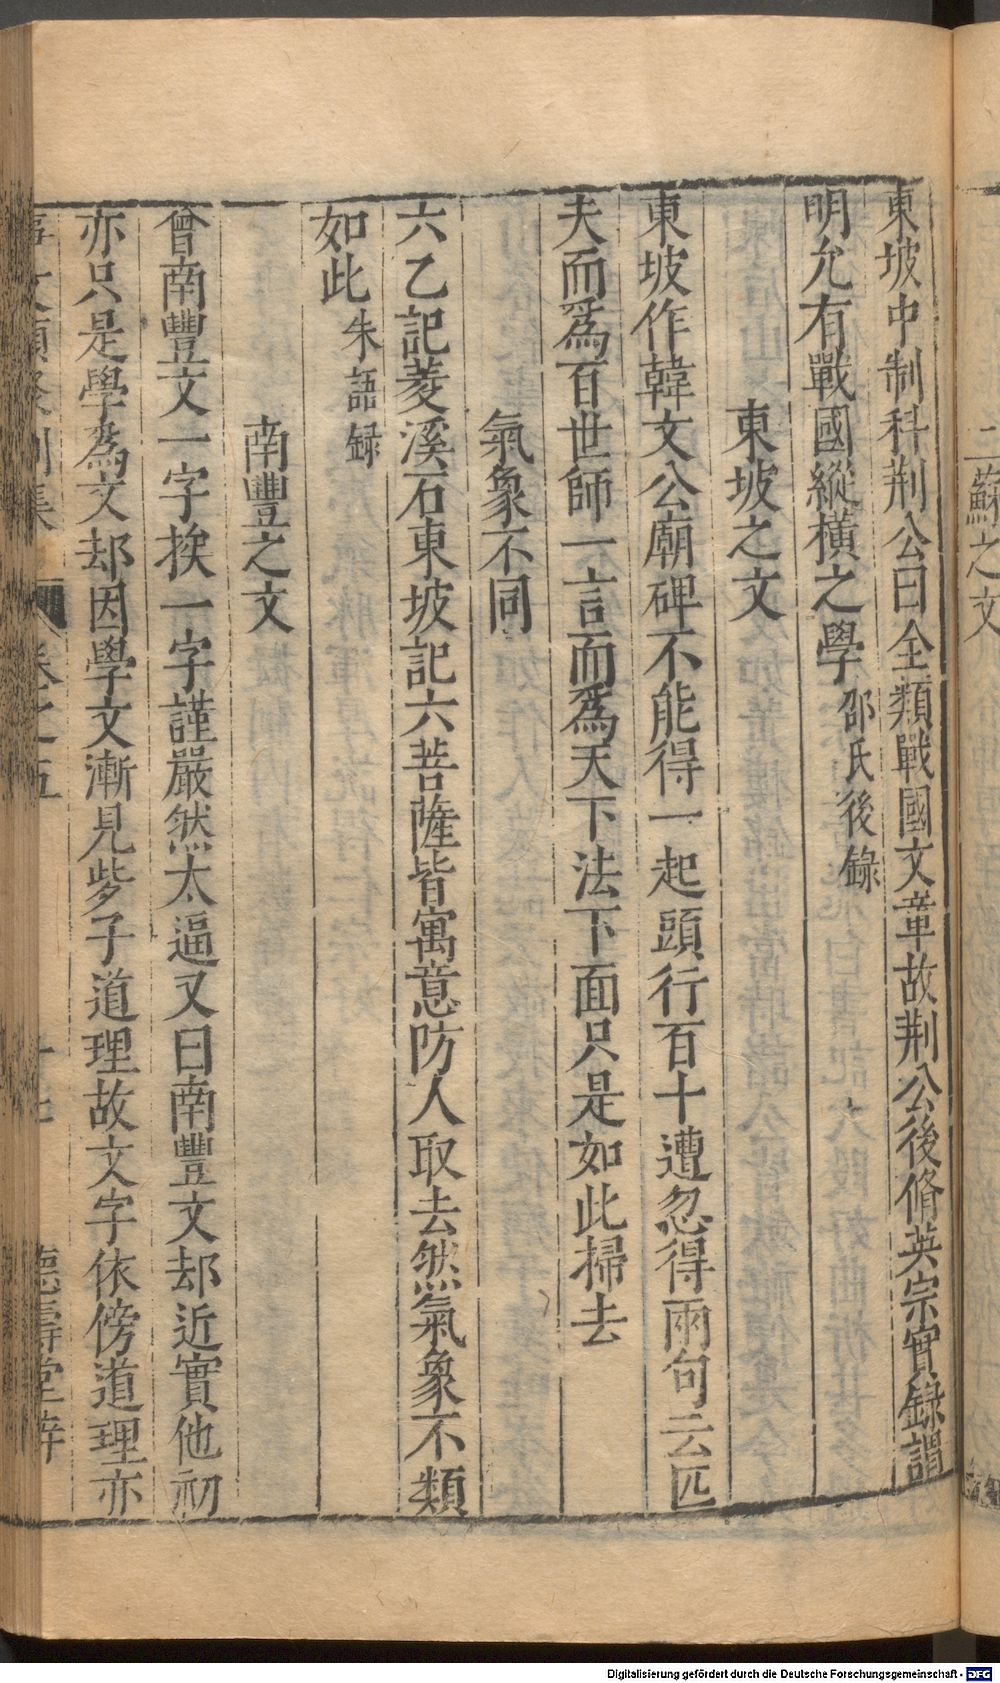 二蘇之文
東坡中制科荆公曰全類戰國文章故荆公後脩英宗實錄謂
明允有戰國縱橫之學邵氏後錄
東坡之文
東坡作韓文公廟碑不能得一起頭行百十遭忽得兩句云匹
夫而爲百世師一言而爲天下法下面只是如此掃去
氣象不同
六乙記菱溪石東坡記六菩薩皆寓意防人取去然氣象不類
如此朱語録
南豐之文
曾南豐文一字挨一字謹嚴然太逼又曰南豐文却近實他初
亦只是學爲文却因學文漸見些子道理故文字依傍道理亦
事文類聚别集 卷之五 德壽堂梓
Digitalisierung gefördert durch die Deutsche Forschungsgemeinschaft - DFG